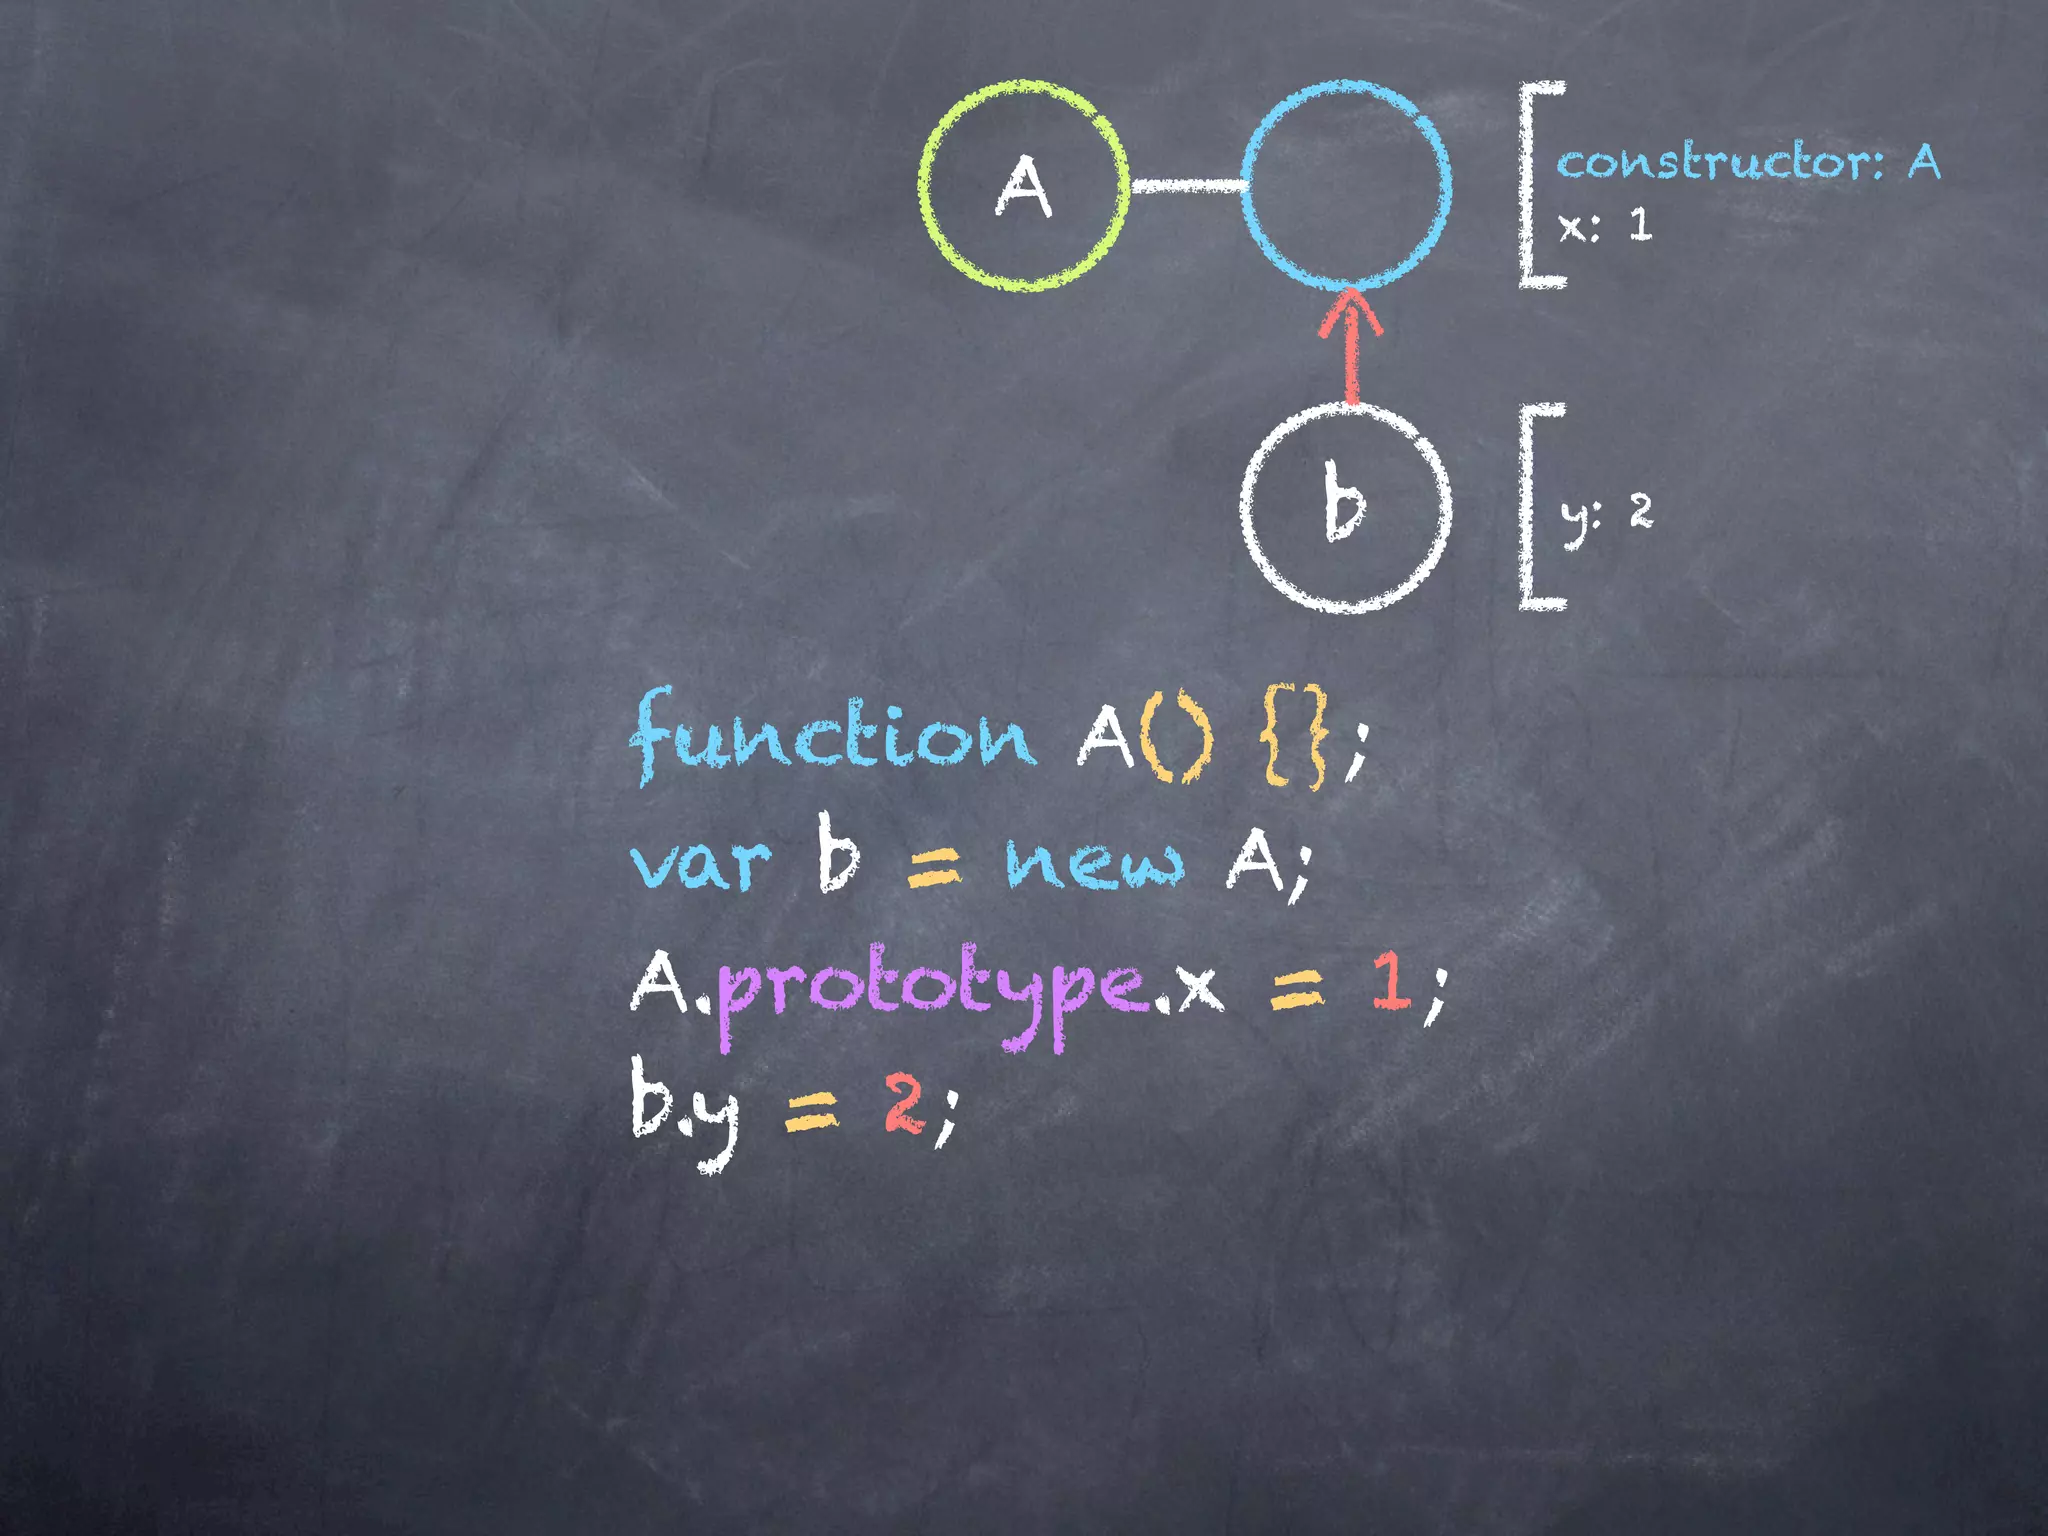 A
constructor: A
x: 1
b
y: 2
function A() {};
var b = new A;
A.prototype.x = 1;
b.y = 2;